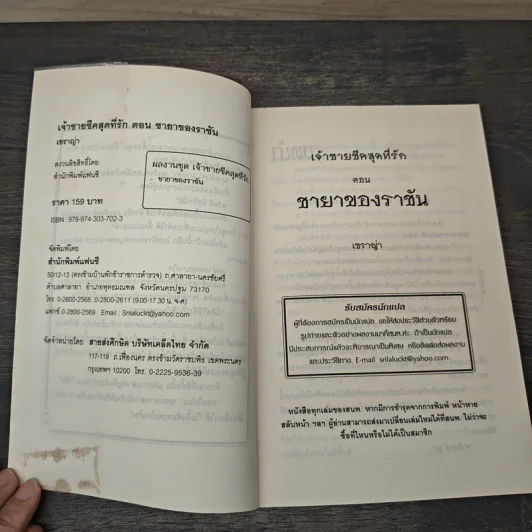 เจ้าชายชีคสุดที่รัก ตอน ชายาของราชัน
เชราญ่า
สงวนลิขสิทธิ์โดย
สำนักพิมพ์แฟนซี
ผลงานชุด เจ้าชายชีคสุดที่รัก
- ชายาของราชัน
ราคา 159 บาท
ISBN : 978-974-303-702-3
จัดพิมพ์โดย
สำนักพิมพ์แฟนซี
50/12-13 (ตรงข้ามบ้านพักข้าราชการตำรวจ) ถ.ศาลายา-นครชัยศรี
ตำบลศาลายา อำเภอพุทธมณฑล จังหวัดนครปฐม 73170
โทร. 0-2800-2568, 0-2800-2611 (9.00-17.30 น. จ-ศ)
แฟกซ์ 0-2800-2569 Email : Srilaluckt@yahoo.com
จัดจำหน่ายโดย สายส่งศึกษิต บริษัทเคล็ดไทย จำกัด
117-119 ถ.เฟื่องนคร ตรงข้ามวัดราชบพิธ เขตพระนคร
กรุงเทพฯ 10200 โทร. 0-2225-9536-39
เจ้าชายชีคสุดที่รัก
ตอน
ชายาของราชัน
เชราญ่า
รับสมัครนักแปล
ผู้ที่ต้องการสมัครเป็นนักแปล ขอให้ส่งประวัติส่วนตัวพร้อม
รูปถ่ายและตัวอย่างผลงานมาที่สนพ.ค่ะ ถ้าเป็นนักแปล
มีประสบการณ์แล้วจะพิจารณาเป็นพิเศษ หรือติดต่อส่งผลงาน
และประวัติทาง E-mail srilaluckt@yahoo.com
หนังสือทุกเล่มของสนพ. หากมีการชำรุดจากการพิมพ์ หน้าหาย
สลับหน้า ฯลฯ ผู้อ่านสามารถส่งมาเปลี่ยนเล่มใหม่ได้ที่สนพ. ไม่ว่าจะ
ซื้อที่ไหนหรือไม่ได้เป็นสมาชิก